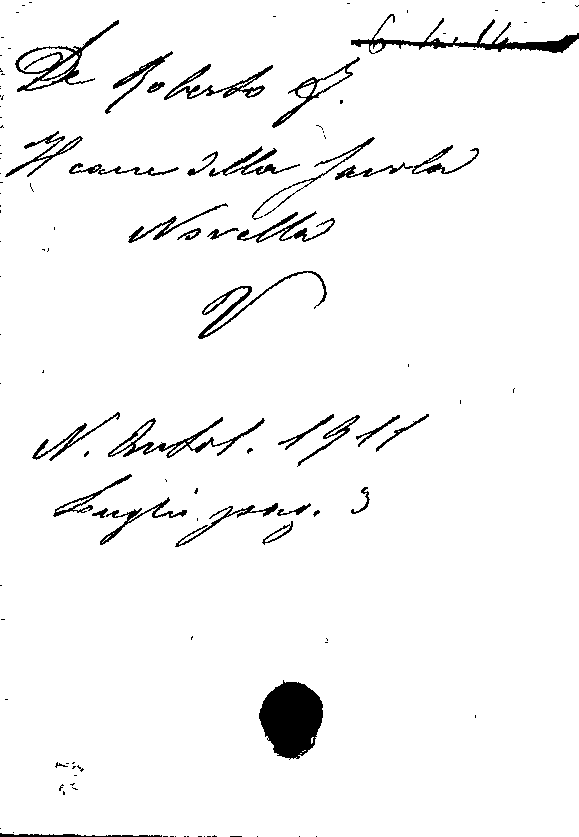 6. h. 14
De Roberto F.
Il cane della favola
Novella
V
N. Antol. 1911
Luglio pag. 3